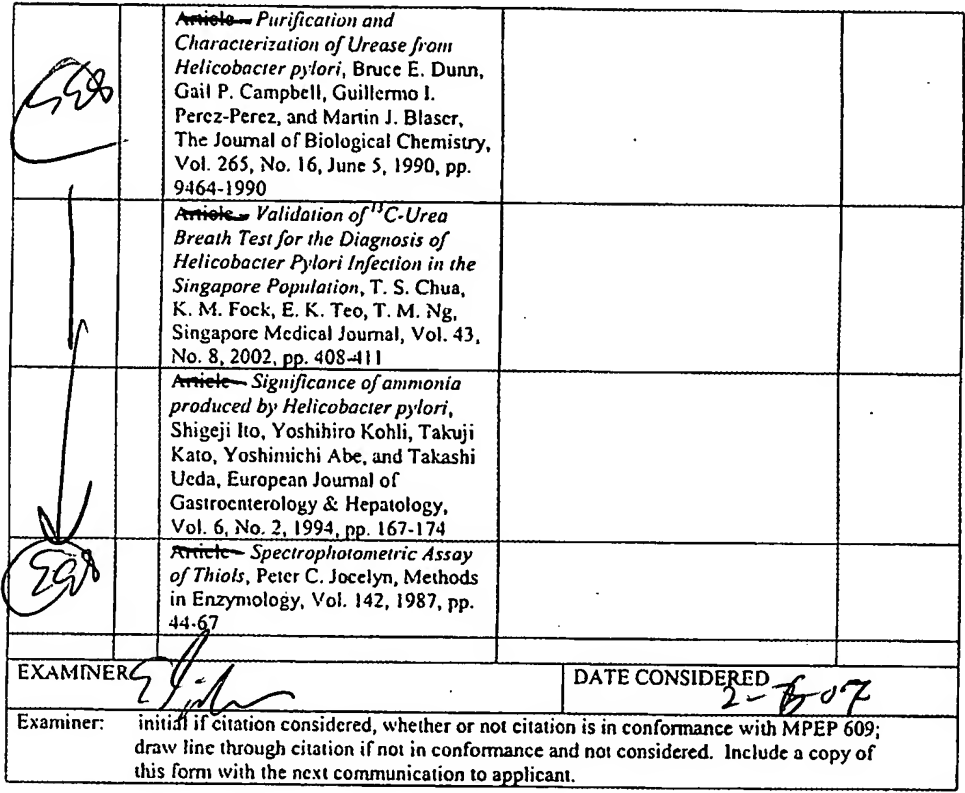 Article – Purification and
Characterization of Urease from
Helicobacter pylori, Bruce E. Dunn,
Gail P. Campbell, Guillermo I.
Perez-Perez, and Martin J. Blaser,
The Journal of Biological Chemistry,
Vol. 265, No. 16, June 5, 1990, pp.
9464-1990
Article – Validation of ¹³C-Urea
Breath Test for the Diagnosis of
Helicobacter Pylori Infection in the
Singapore Population, T. S. Chua,
K. M. Fock, E. K. Teo, T. M. Ng,
Singapore Medical Journal, Vol. 43,
No. 8, 2002, pp. 408-411
Article – Significance of ammonia
produced by Helicobacter pylori,
Shigeji Ito, Yoshihiro Kohli, Takuji
Kato, Yoshimichi Abe, and Takashi
Ueda, European Journal of
Gastroenterology & Hepatology,
Vol. 6, No. 2, 1994, pp. 167-174
Article – Spectrophotometric Assay
of Thiols, Peter C. Jocelyn, Methods
in Enzymology, Vol. 142, 1987, pp.
44-67
EXAMINER
DATE CONSIDERED
Examiner: initial if citation considered, whether or not citation is in conformance with MPEP 609;
draw line through citation if not in conformance and not considered. Include a copy of
this form with the next communication to applicant.